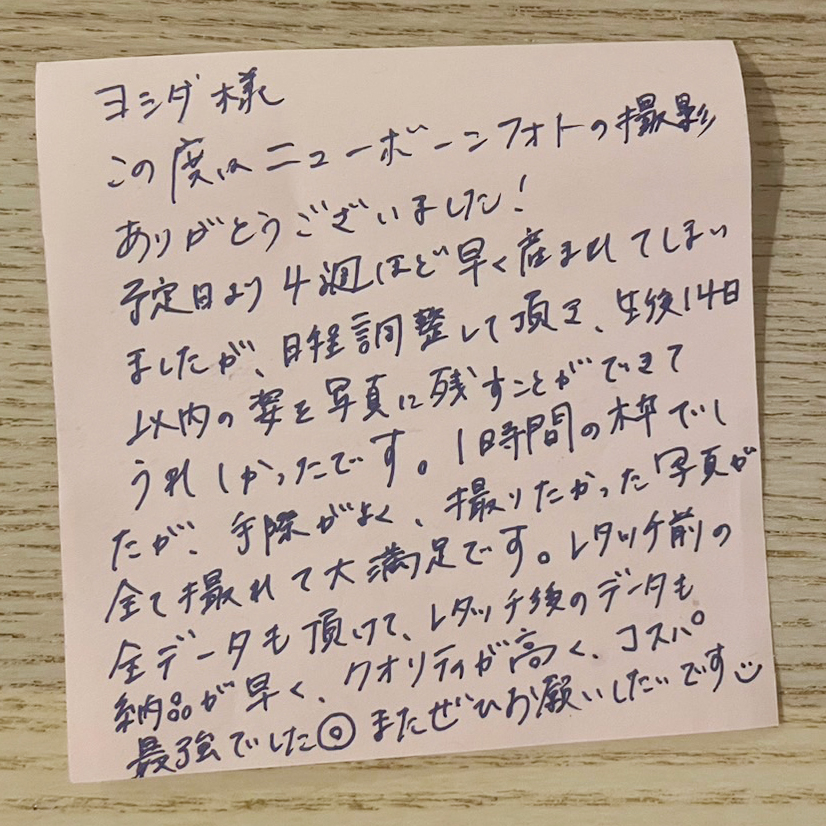 ヨシダ様
この度はニューボーンフォトの撮影
ありがとうございました!
予定日より4週ほど早く産まれてしまい
ましたが、日程調整して頂き、生後14日
以内の姿を写真に残すことができて
うれしかったです。1時間の枠でし
たが、手際がよく、撮りたかった写真が
全て撮れて大満足です。レタッチ前の
全データも頂けて、レタッチ後のデータも
納品が早く、クオリティが高く、コスパ
最強でした◎またぜひお願いしたいです